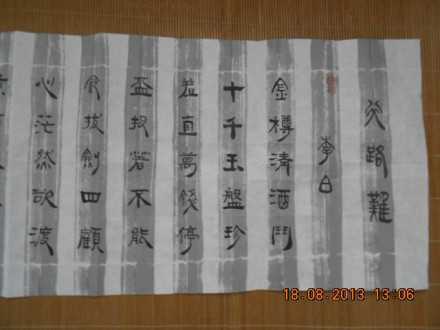 行路難
李白
金樽清酒鬥
十千玉盤珍
羞直萬錢停
盃投箸不能
食拔劍四顧
心茫然欲渡
18.08.2013 13:06